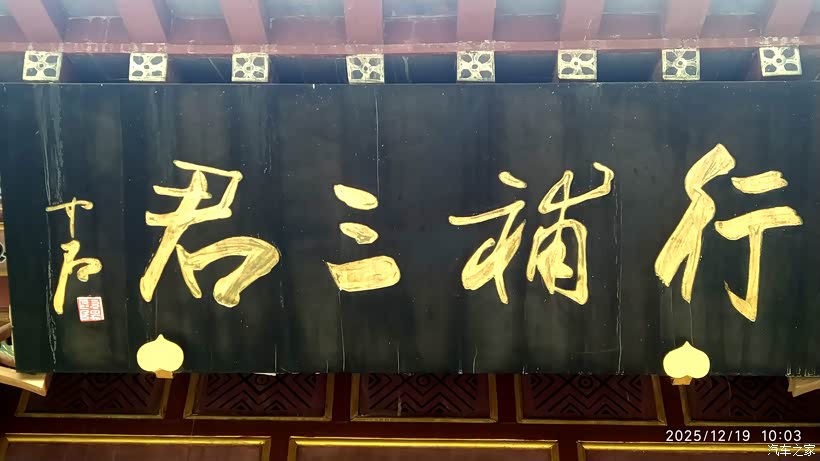 行補三君
2025/12/19 10:03
汽车之家